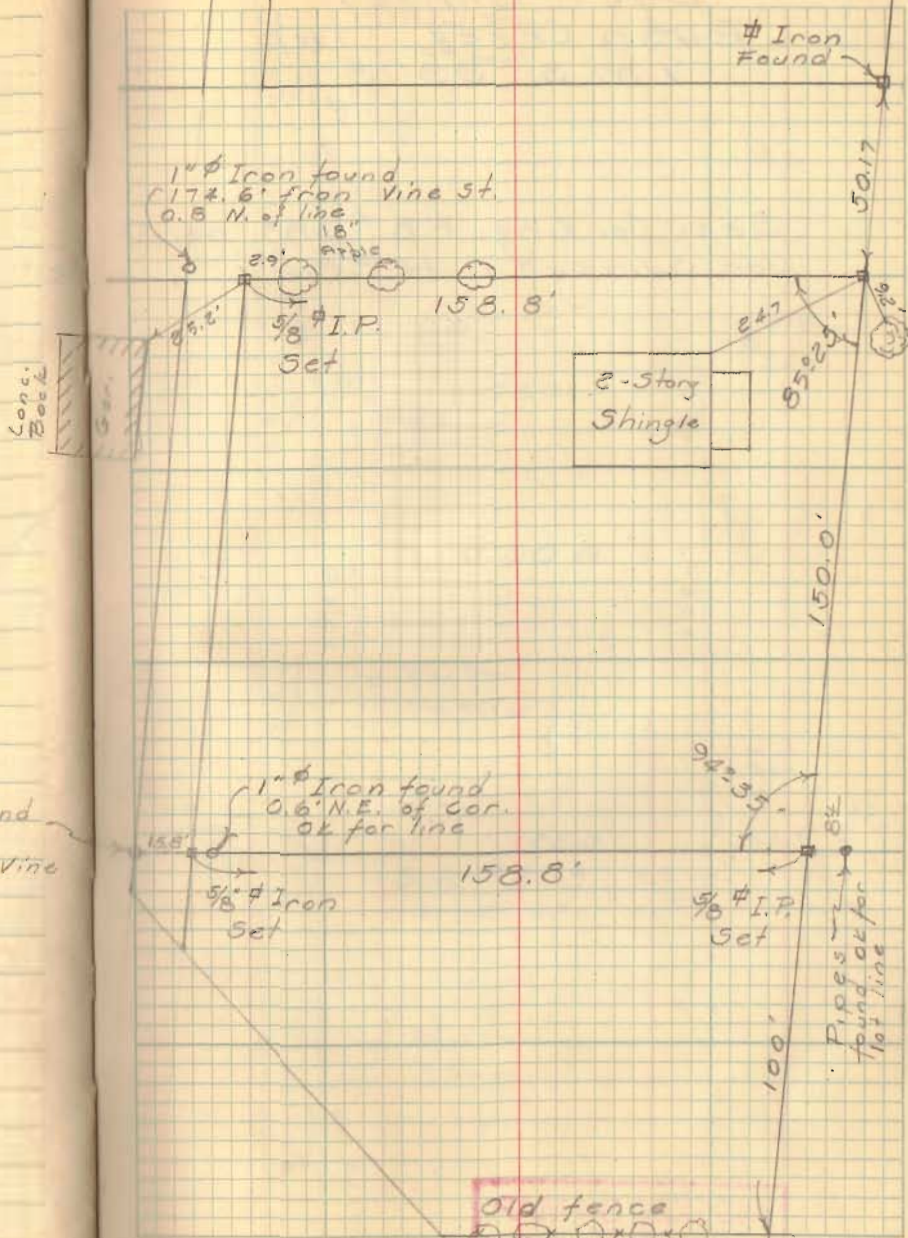 ⌀ Iron
Found
50.17
1" ⌀ Iron found
174.6' from Vine St.
0.8 N. of line
18"
Apple
2.9'
158.8'
5/8 ⌀ I.P.
Set
24.7
85°25'
2-Story
Shingle
Conc.
Gar.
150.0'
94°-35'
1" ⌀ Iron found
0.6' N.E. of Cor.
OK for line
nd
Vine
15.8'
158.8'
5/8" ⌀ Iron
Set
5/8 ⌀ I.P.
Set
Pipes
found ok for
lot line
100'
Old fence